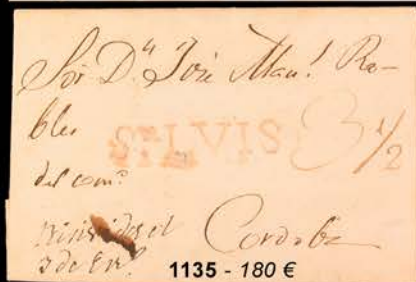 Sor Dn José Manl Ro-
bles
SN LVIS 3 1/2
del comº
Cordoba
3 de Enº
1135 - 180 €